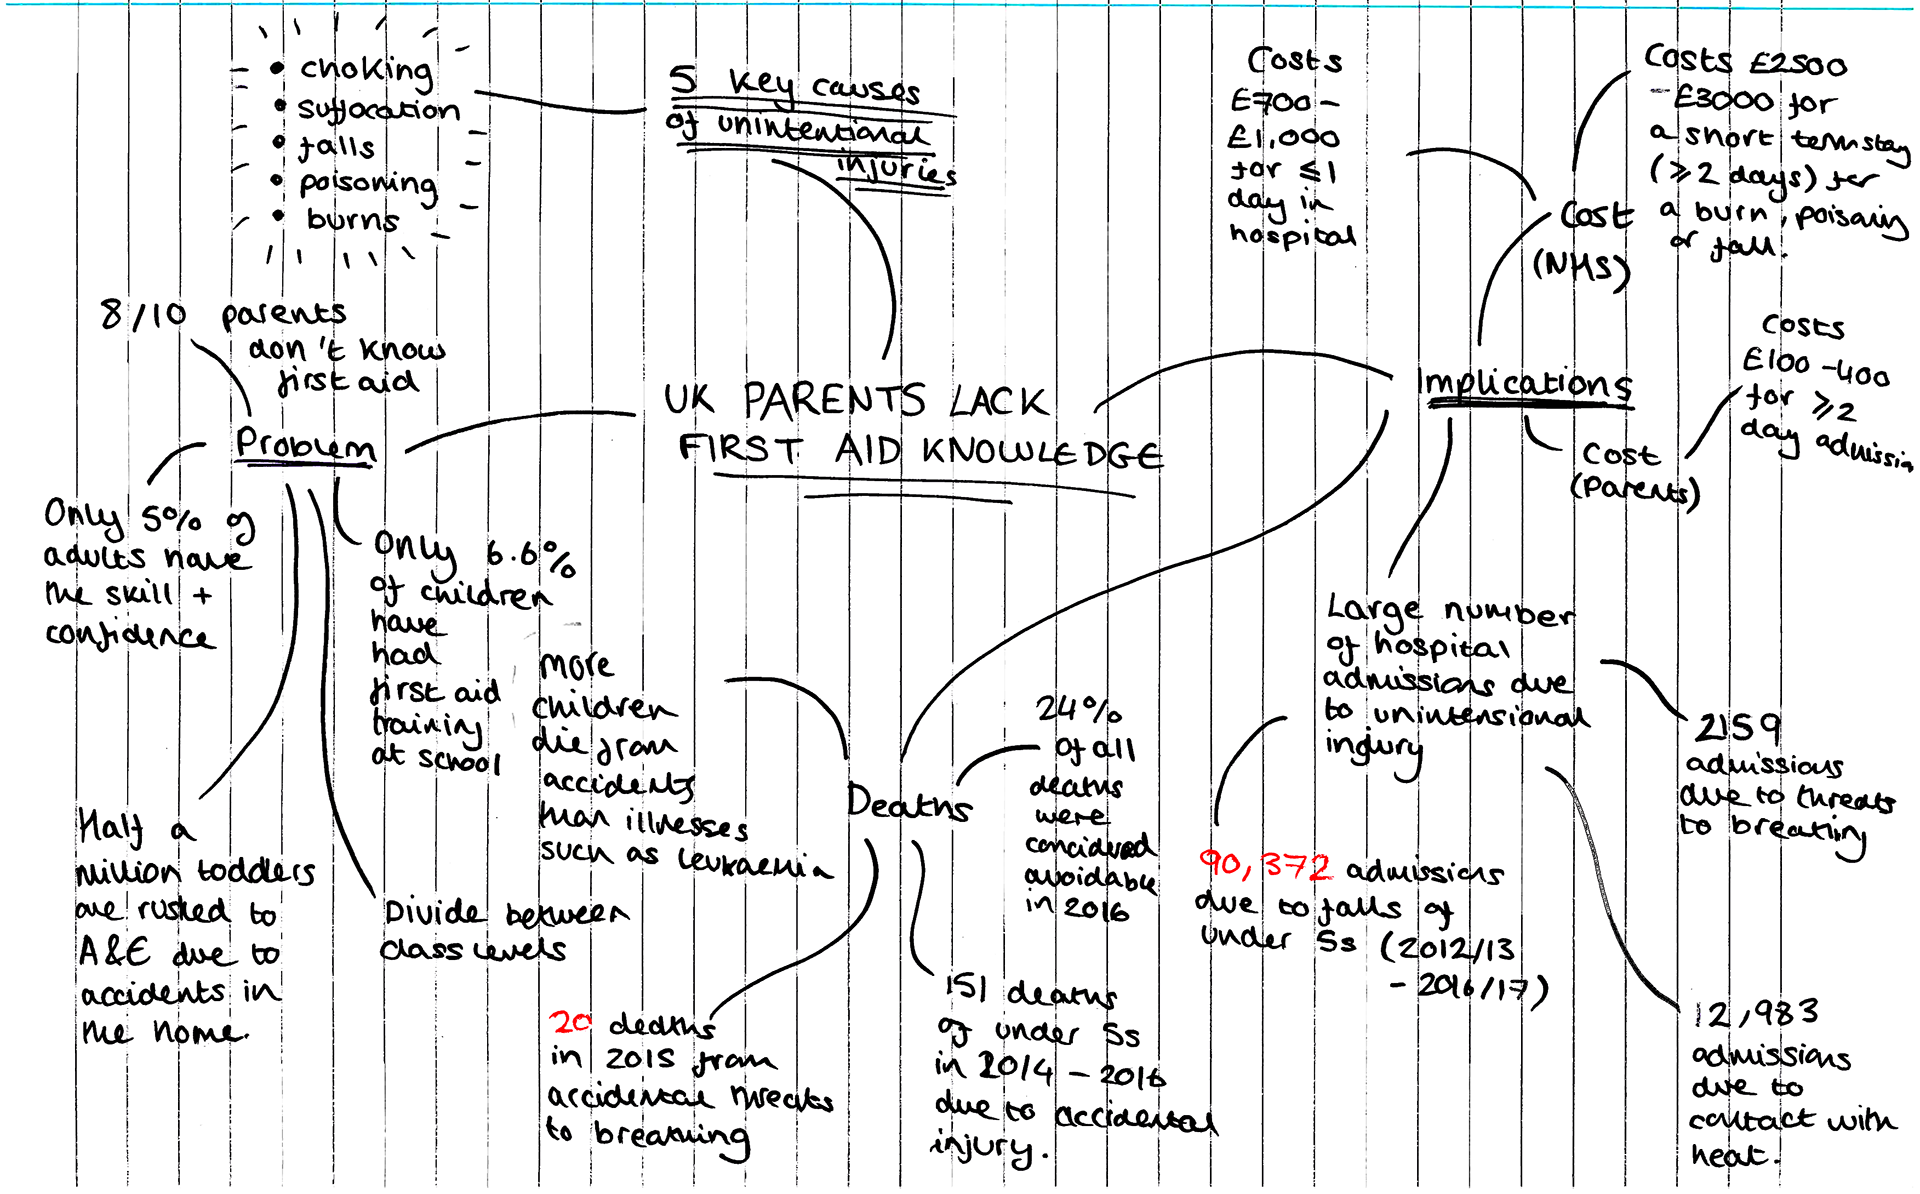 • choking
• suffocation
• falls
• poisoning
• burns
5 key causes
of unintentional
injuries
Costs
£700 -
£1,000
for ≤1
day in
hospital
Costs £2500
- £3000 for
a short term stay
(≥2 days) for
a burn, poisoning
or fall.
Cost
(NHS)
8/10 parents
don't know
first aid
UK PARENTS LACK
FIRST AID KNOWLEDGE
Implications
Costs
£100 - 400
for ≥2
day admission
Cost
(Parents)
Problem
Only 5% of
adults have
the skill +
confidence
Only 6.6%
of children
have
had
first aid
training
at school
Half a
million toddlers
are rushed to
A&E due to
accidents in
the home.
Divide between
class levels
more
children
die from
accidents
than illnesses
such as leukaemia
Deaths
24%
of all
deaths
were
concidered
avoidable
in 2016
20 deaths
in 2015 from
accidental threats
to breathing
151 deaths
of under 5s
in 2014 - 2016
due to accidental
injury.
Large number
of hospital
admissions due
to unintensional
injury
90,372 admissions
due to falls of
under 5s (2012/13
- 2016/17)
2159
admissions
due to threats
to breathing
12,983
admissions
due to
contact with
heat.